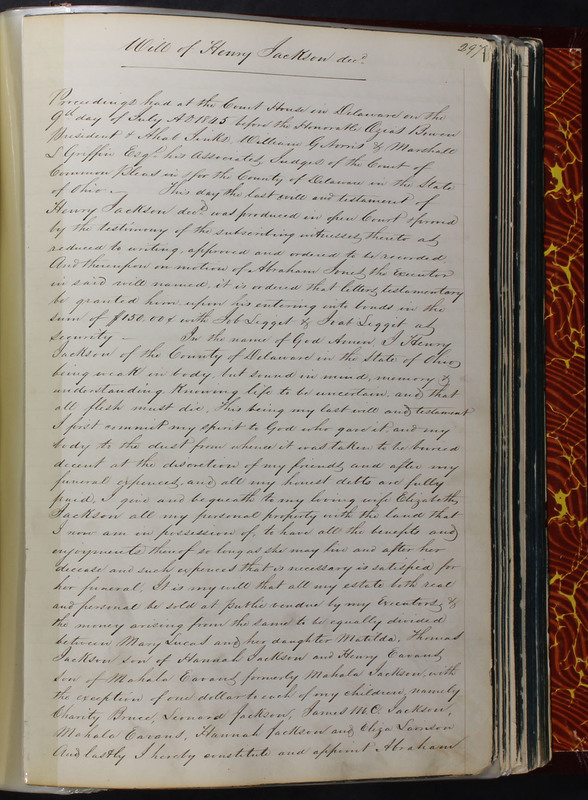 297
Will of Henry Jackson decd.
Proceedings had at the Court House in Delaware on the
9th day of July AD 1845 before the Honorable Ozias Bowen
President & Ahab Jinks, William G Norris & Marshall
L Griffin Esqrs his Associates, Judges of the Court of
Common Pleas in & for the County of Delaware in the State
of Ohio. This day the last will and testament of
Henry Jackson decd. was produced in open Court & proved
by the testimony of the subscribing witnesses thereto as
reduced to writing, approved and ordered to be recorded
And thereupon on motion of Abraham Jones the executor
in said will named, it is ordered that letters testamentary
be granted him upon his entering into bonds in the
sum of $150.00 with Job Legget & Leggit as
security — In the name of God Amen. I Henry
Jackson of the County of Delaware in the State of Ohio
being weak in body, but sound in mind, memory &
understanding. Knowing life to be uncertain, and that
all flesh must die. This being my last will and testament
I first commit my spirit to God who gave it, and my
body to the dust from whence it was taken to be buried
decent at the discretion of my friends, and after my
funeral expences and all my honest debts are fully
paid, I give and bequeath to my loving wife Elizabeth
Jackson all my personal property with the land that
I now am in possession of, to have all the benefits and
enjoyments thereof so long as she may live and after her
decease and such expences that is necessary is satisfied for
her funeral, It is my will that all my estate both real
and personal be sold at public vendue by my Executors, &
the money arising from the same to be equally divided
between Mary Lucas and her daughter Matilda, Thomas
Jackson son of Hannah Jackson and Henry Eavans
son of Mahala Eavans formerly Mahala Jackson, with
the exception of one dollar to each of my children, namely
Charity Bruce, Leonard Jackson, James Jackson,
Mahala Eavans, Hannah Jackson and Eliza
And lastly I hereby constitute and appoint Abraham